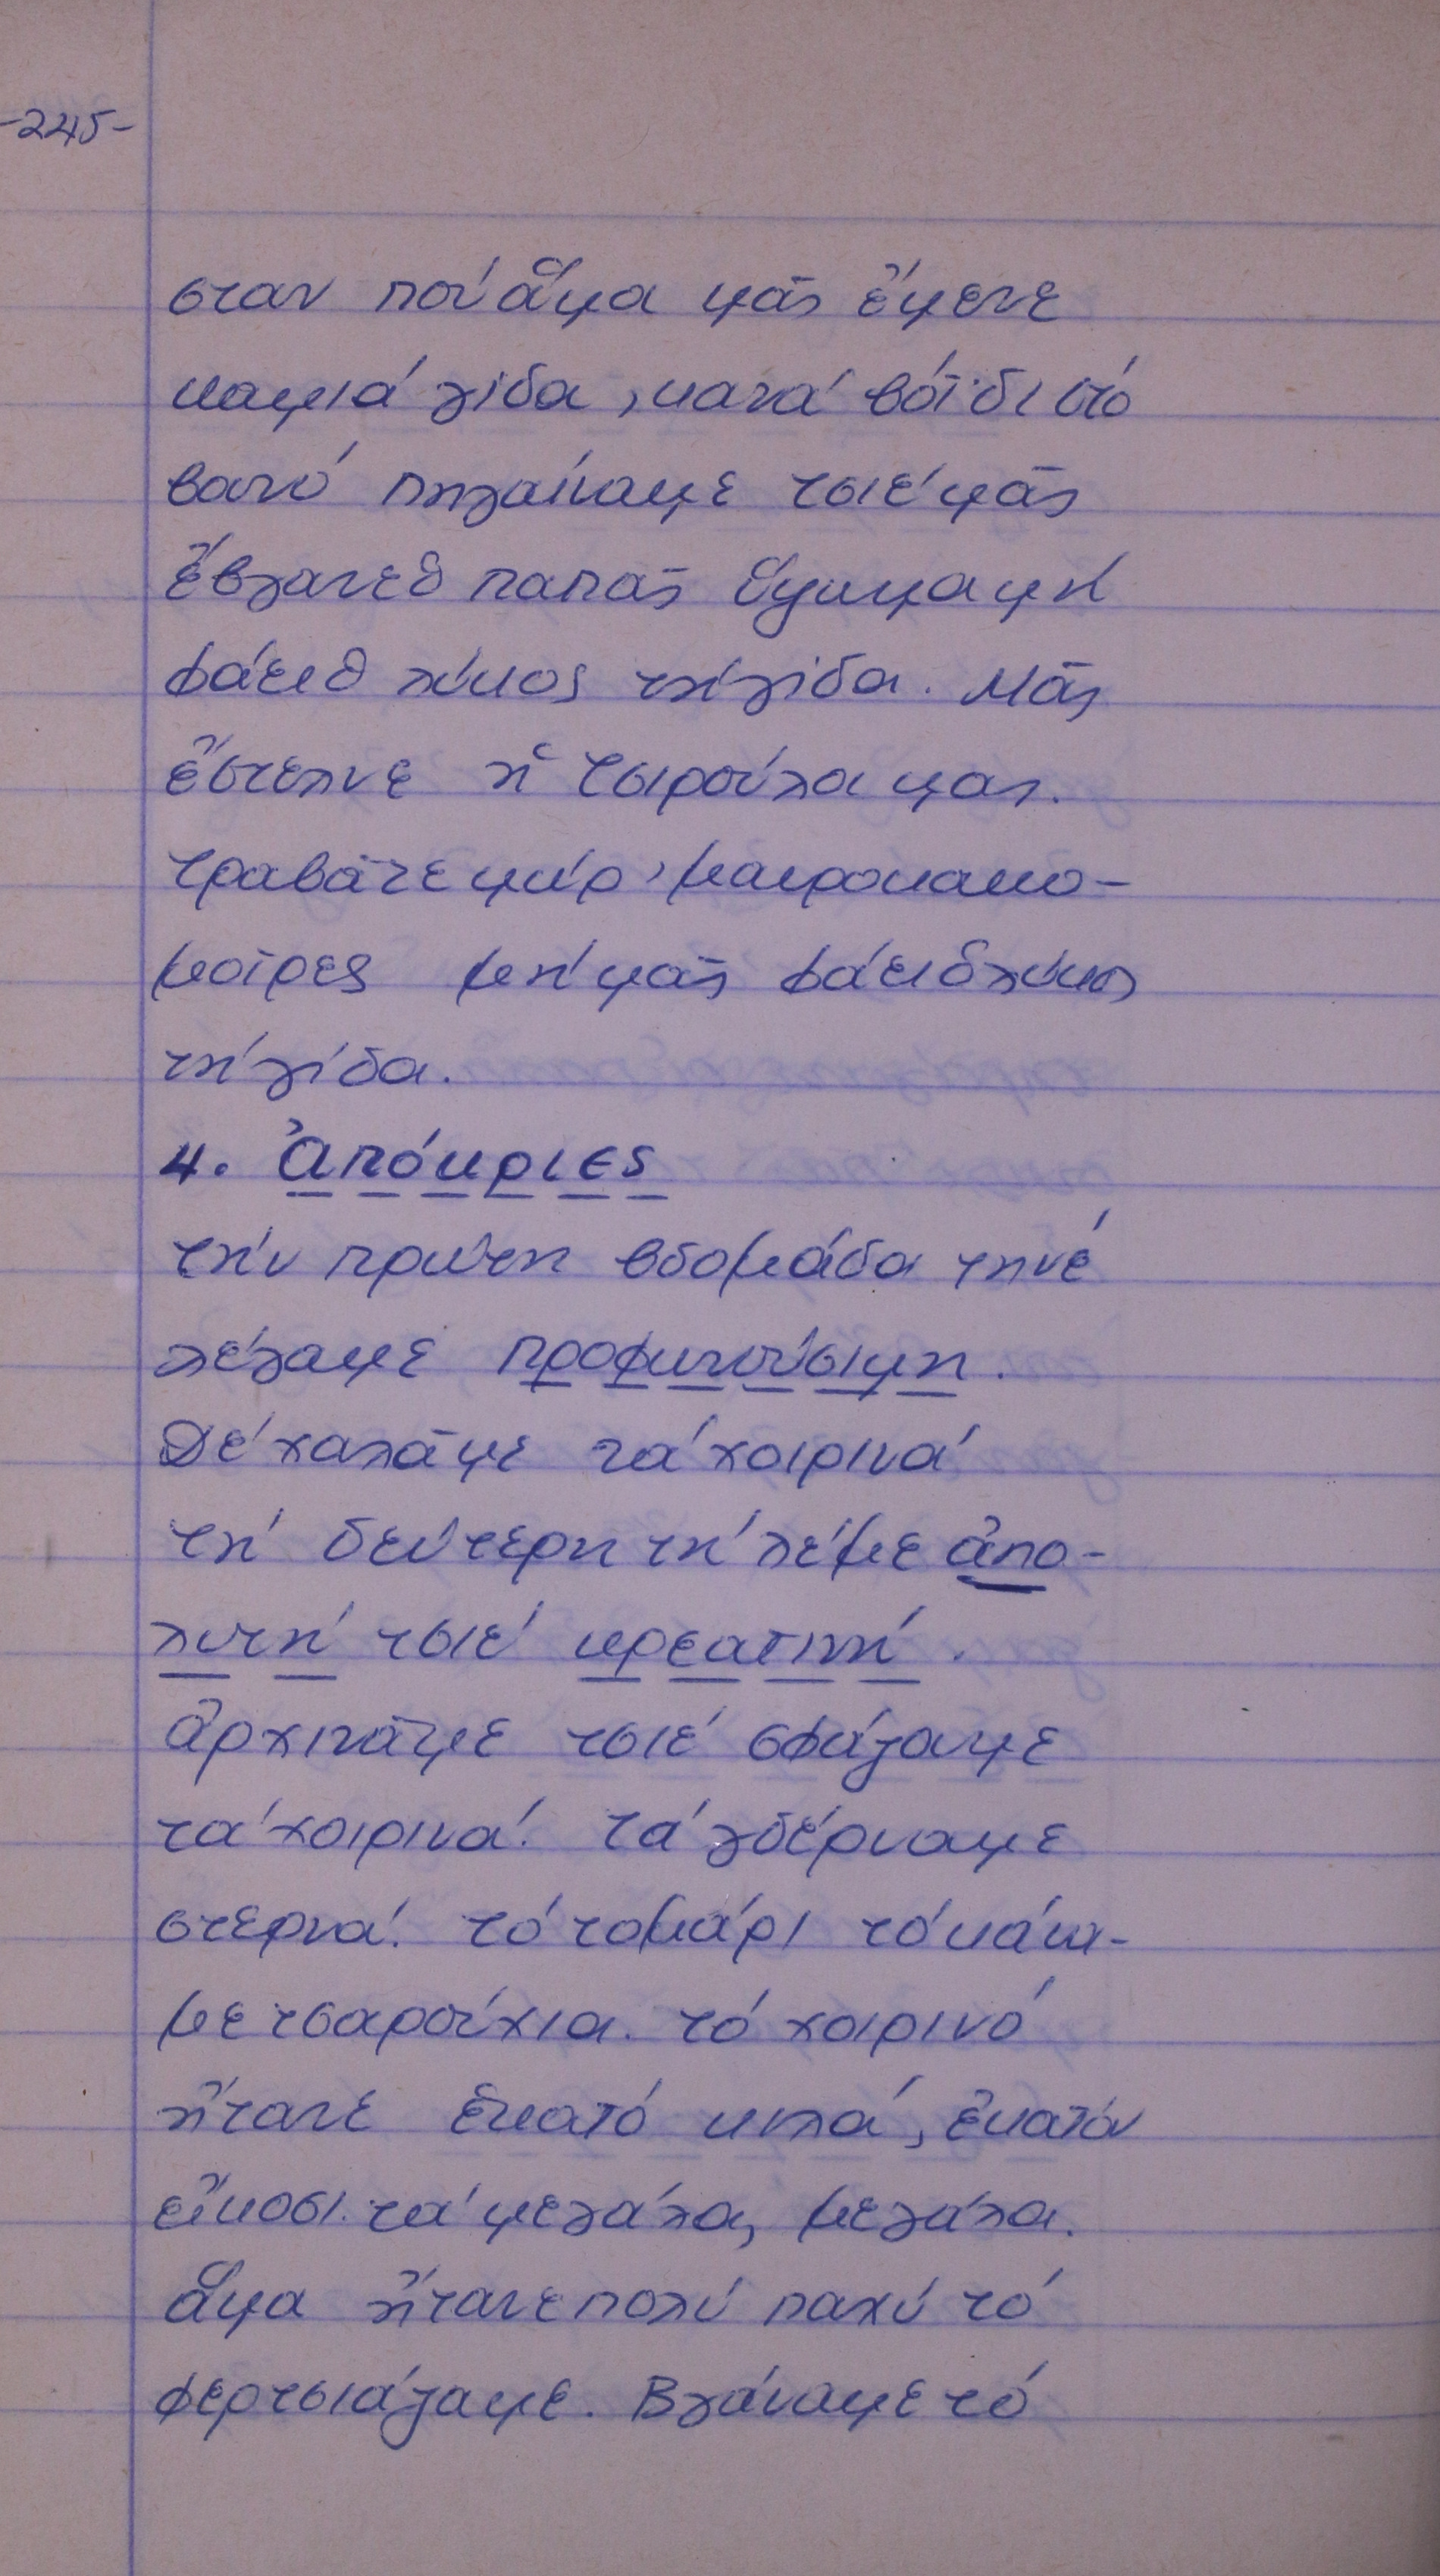 -245-
σταν πού ἅμα μᾶς ἔμενε
καμιά γίδα, κανά βόϊδι στό
βουνό πηγαίναμε τσιέ μᾶς
ἔβγανε ὁ παπᾶς ὕψωμα μή
φάει ὁ λύκος τή γίδα. Μᾶς
ἔστελνε ἡ τσιρούλα μας.
τραβᾶτε μωρ, μαυροκακο-
μοῖρες μή μᾶς φάει ὁ λύκος
τή γίδα.
4. Ἀπόκριες
τήν πρώτη βδομάδα τηνέ
λέγαμε προφωνούσιμη.
Δέ χαλᾶμε τά χοιρινά
τή δεύτερη τή λέμε ἀπο-
λυτή τσιέ κρεατινή.
ἀρχινᾶμε τσιέ σφάζαμε
τά χοιρινά. τά γδέρναμε
στερνά. τό τομάρι τό κάνα-
με τσαρούχια. τό χοιρινό
ἤτανε ἑκατό κιλά, ἑκατόν
εἴκοσι. τά μεγάλα, μεγάλα.
ἅμα ἤτανε πολύ παχύ τό
φερτσιάζαμε. Βγάναμε τό